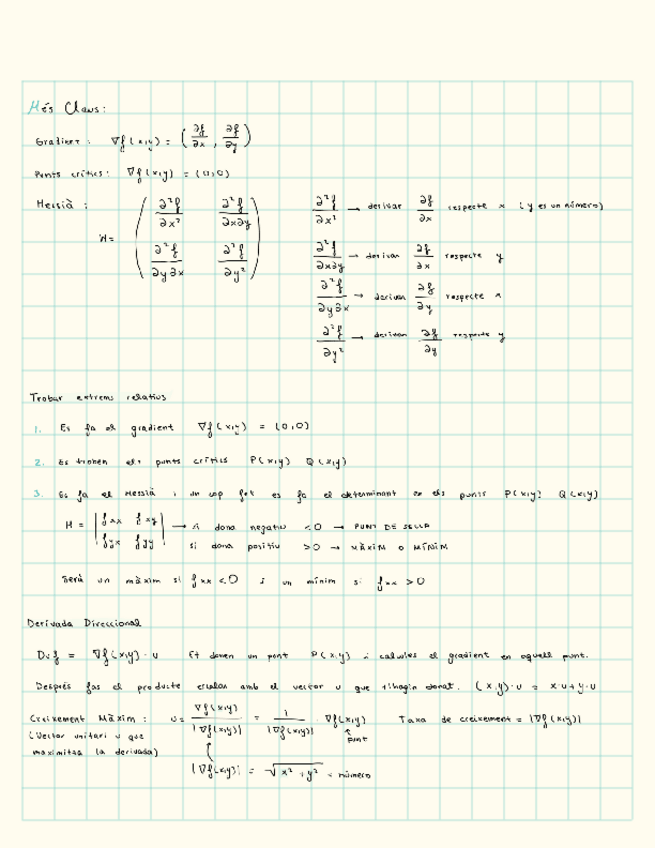 Més Claus:
Gradient: ∇f(x,y) = (∂f/∂x, ∂f/∂y)
Punts crítics: ∇f(x,y) = (0,0)
Hessià:
H = (∂²f/∂x² ∂²f/∂x∂y
∂²f/∂y∂x ∂²f/∂y²)
∂²f/∂x² → derivar ∂f/∂x respecte x (y es un número)
∂²f/∂x∂y → derivar ∂f/∂x respecte y
∂²f/∂y∂x → derivar ∂f/∂y respecte x
∂²f/∂y² → derivar ∂f/∂y respecte y
Trobar extrems relatius
1. Es fa el gradient ∇f(x,y) = (0,0)
2. Es troben els punts crítics P(x,y) Q(x,y)
3. Es fa el Hessià i un cop fet es fa el determinant en els punts P(x,y) Q(x,y)
H = |fxx fxy| → si dona negatiu <0 → PUNT DE SELLA
|fyx fyy| si dona positiu >0 → MÀXIM O MÍNIM
Serà un màxim si fxx <0 i un mínim si fxx >0
Derivada Direccional
Duf = ∇f(x,y)·u Et donen un punt P(x,y) i calcules el gradient en aquell punt.
Després fas el producte escalar amb el vector u que t'hagin donat. (x,y)·u = x·u+y·u
Creixement Màxim: u = ∇f(x,y)/|∇f(x,y)| = 1/|∇f(x,y)| · ∇f(x,y) Taxa de creixement = |∇f(x,y)|
(Vector unitari u que punt
maximitza la derivada)
|∇f(x,y)| = √x²+y² = número